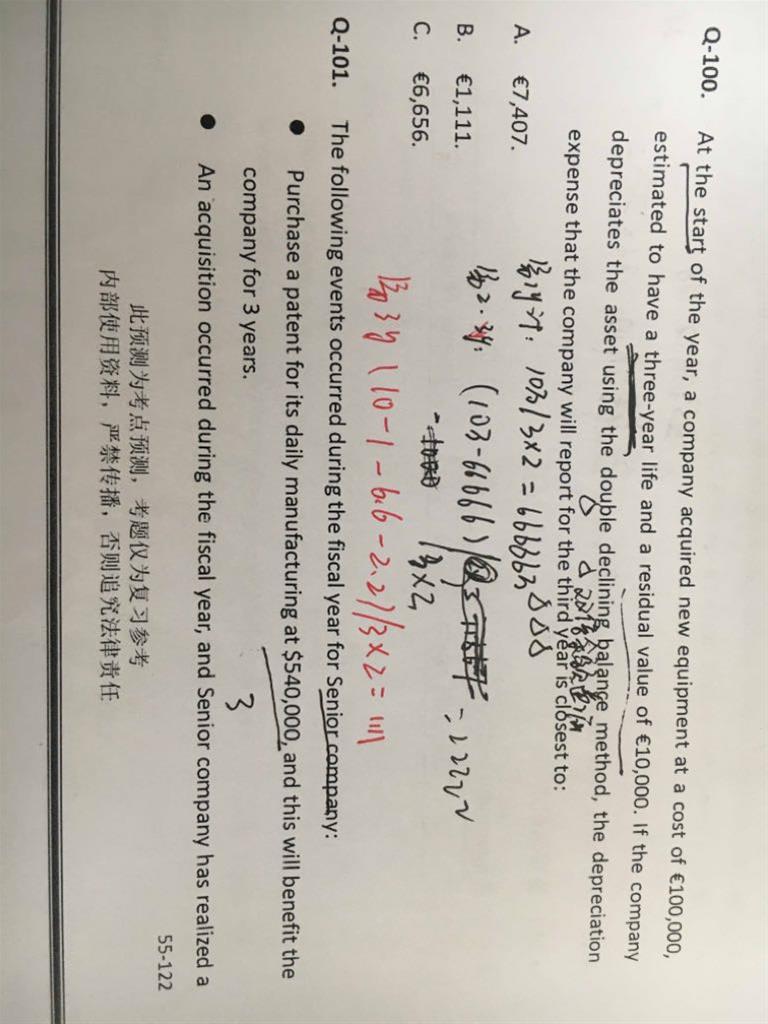 Q-100. At the start of the year, a company acquired new equipment at a cost of €100,000,
estimated to have a three-year life and a residual value of €10,000. If the company
depreciates the asset using the double declining balance method, the depreciation
expense that the company will report for the third year is closest to:
A. €7,407.
B. €1,111.
C. €6,656.
1y 10万/3×2=66666
(10万-66666)/3×2 =2222
3y (10-1-6.6-2.2)/3×2=1111
Q-101. The following events occurred during the fiscal year for Senior company:
● Purchase a patent for its daily manufacturing at $540,000, and this will benefit the
company for 3 years.
3
● An acquisition occurred during the fiscal year, and Senior company has realized a
55-122
此预测为考点预测，考题仅为复习参考
内部使用资料，严禁传播，否则追究法律责任